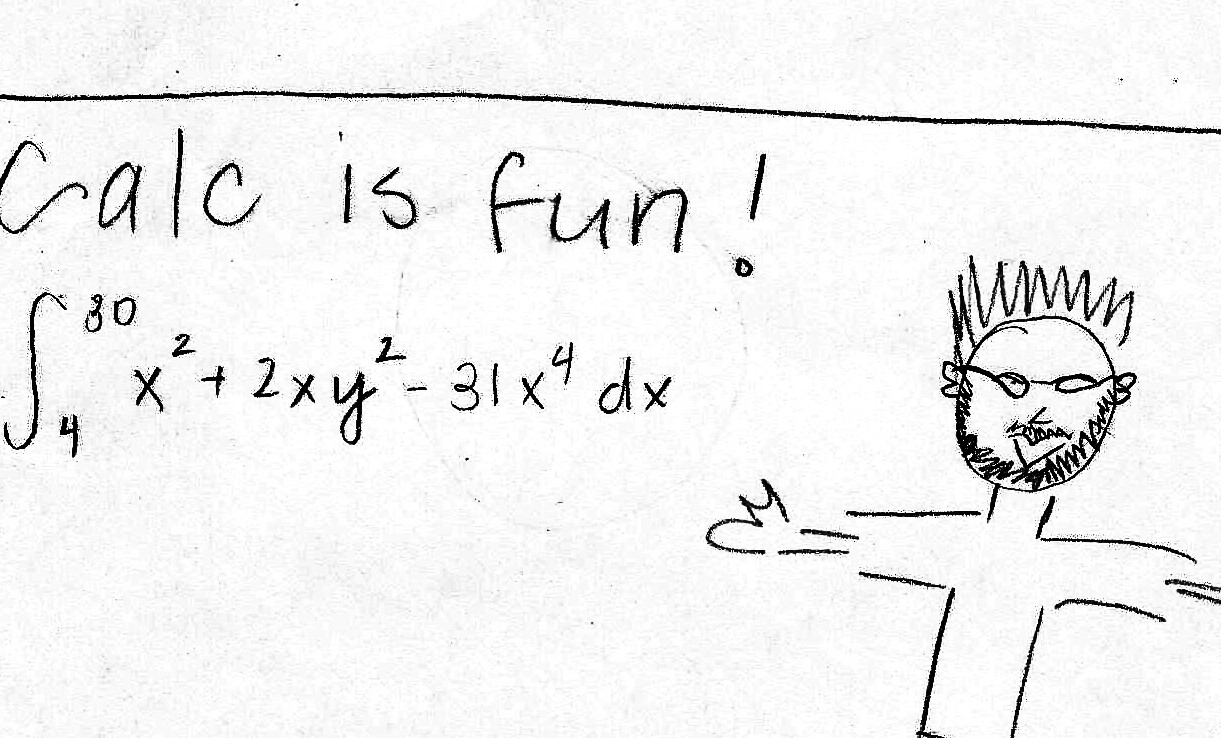 Calc is fun!
∫₄³⁰ x² + 2xy² - 31x⁴ dx